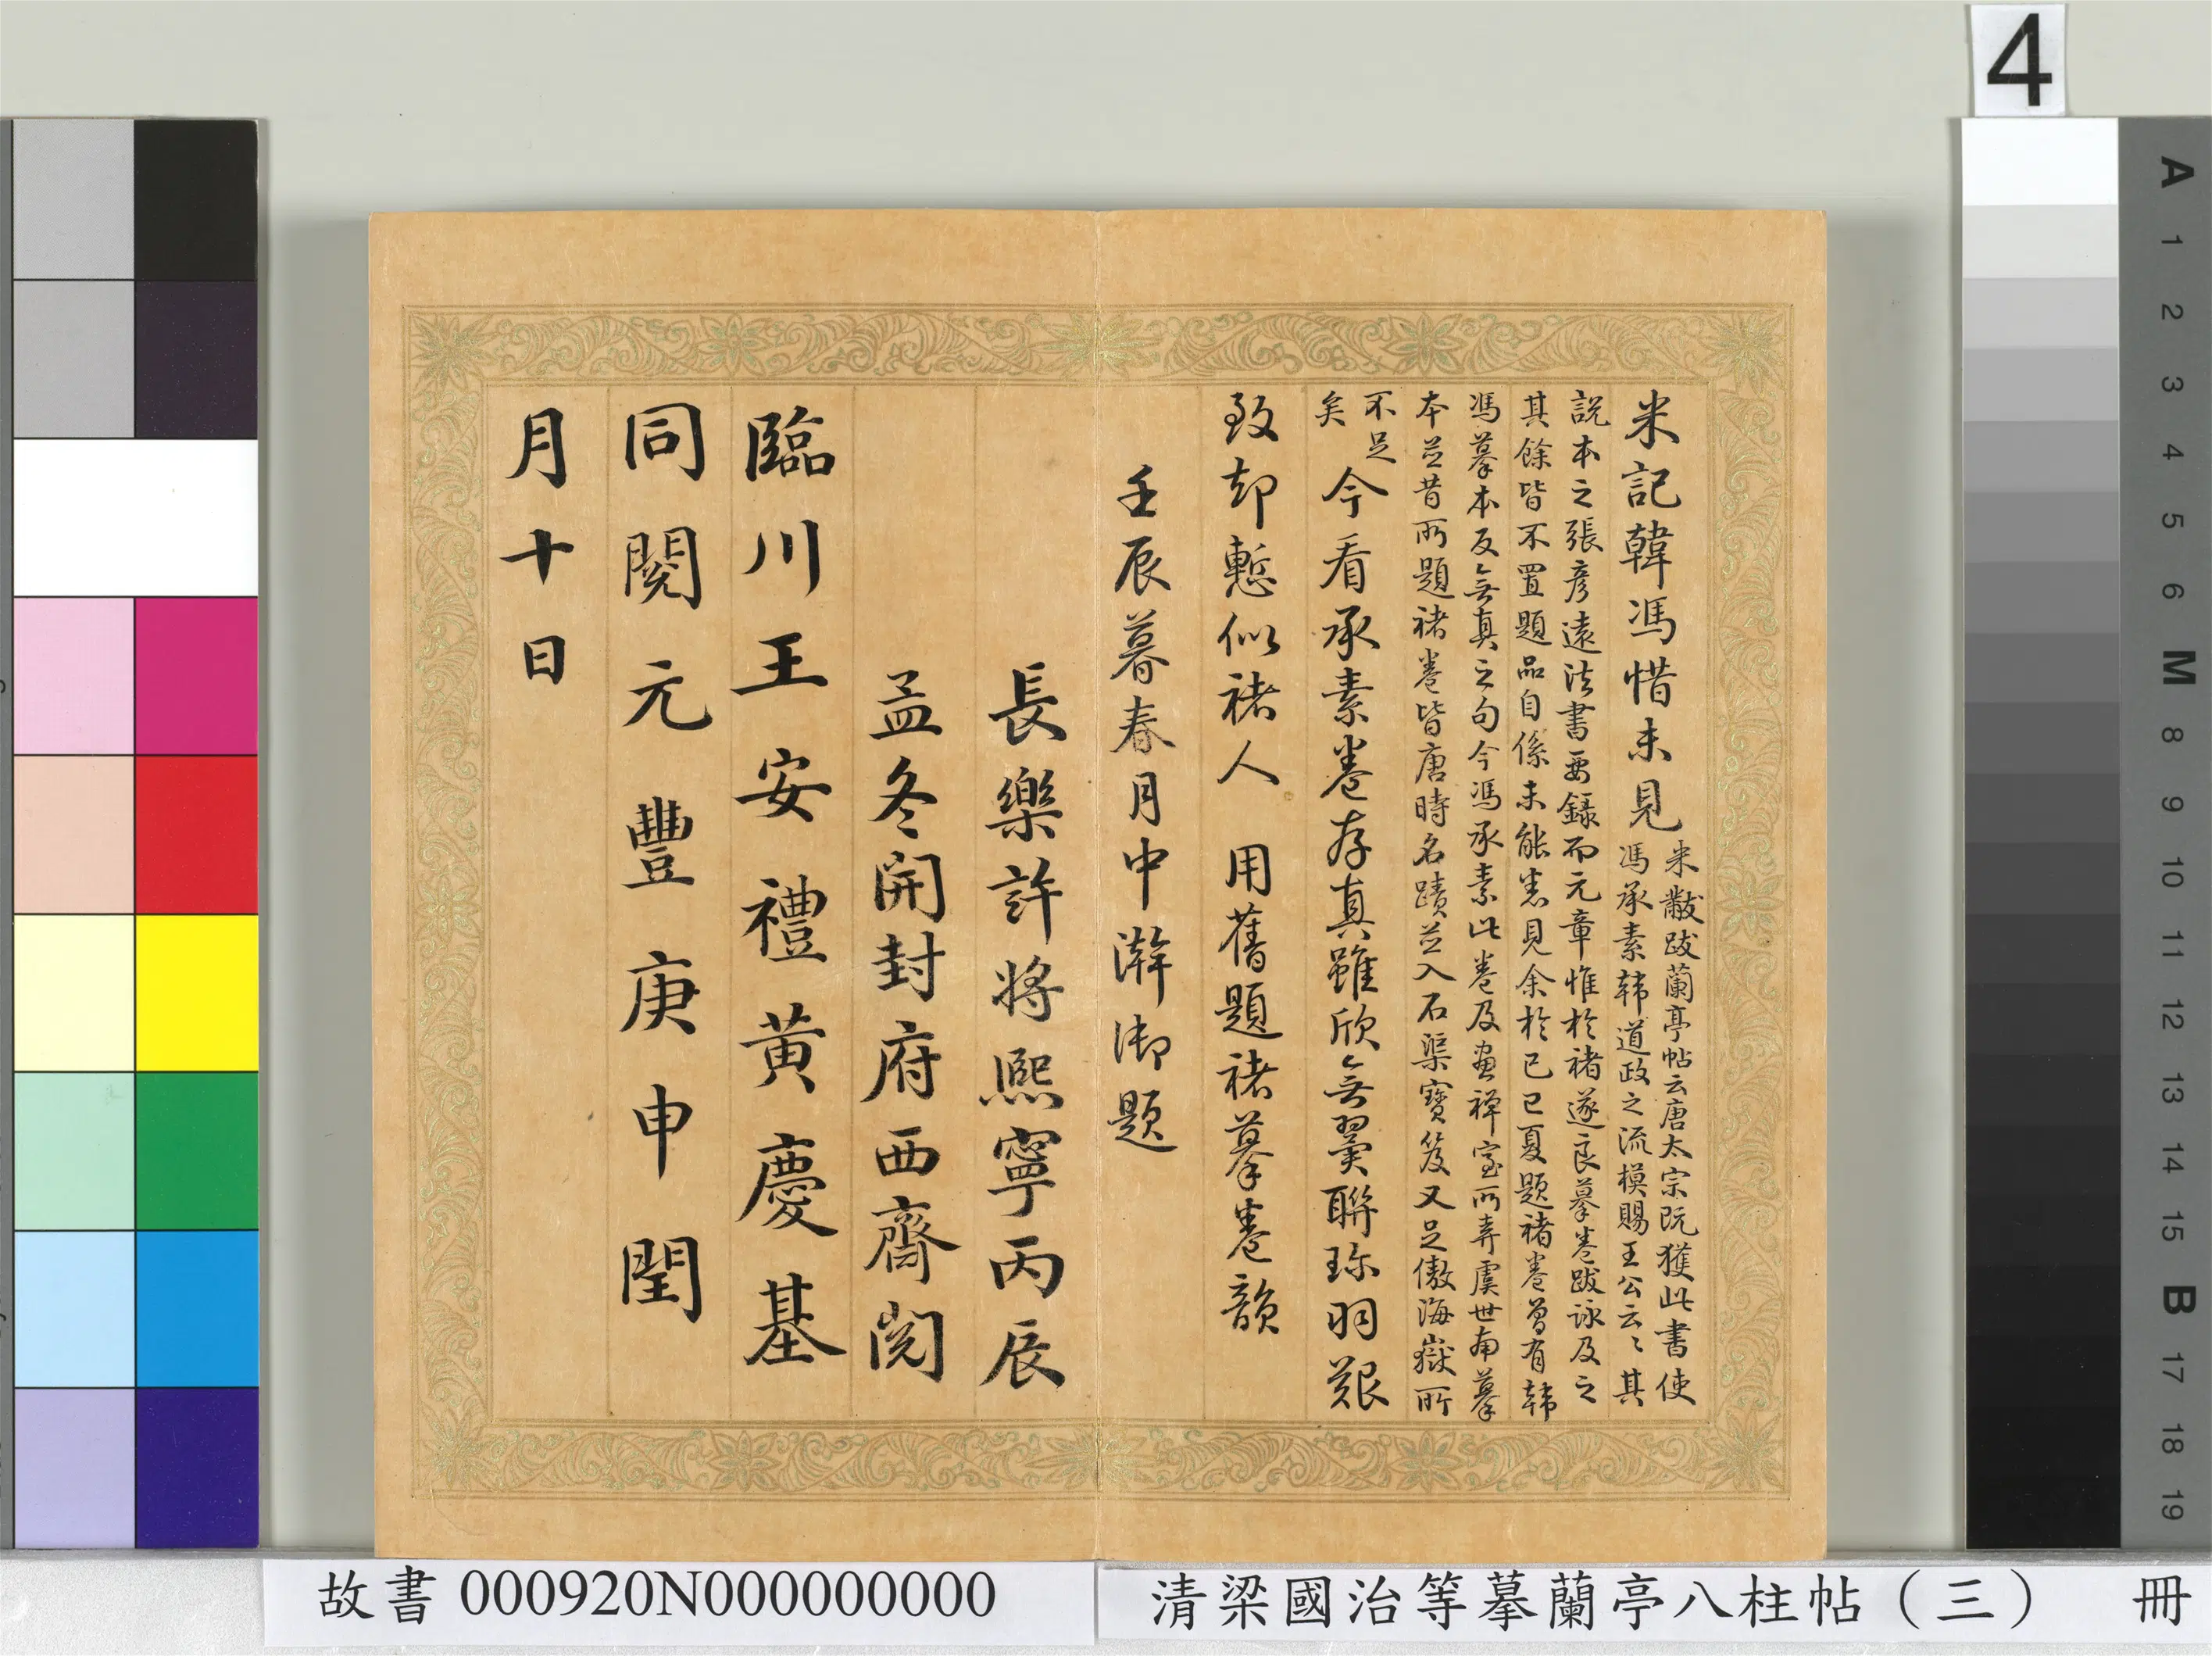 米記韓馮惜未見
米黻跋蘭亭帖云唐太宗既獲此書使
馮承素韩道政之流模賜王公云〻其
說本之張彥遠法書要錄而元章惟於褚遂良摹卷跋詠及之
其餘皆不置題品自係未能悉見余於己巳夏題褚卷曾有韩
馮摹本反無真之句今馮承素此卷及畫禅室所弆虞世南摹
本並昔所題褚卷皆唐時名蹟並入石渠寶笈又足傲海嶽所
不足
矣
今看承素卷存真雖欣無翼聯珎羽艱
致却慙似褚人 用舊題褚摹卷韻
壬辰暮春月中澣御題
長樂許將熙寧丙辰
孟冬開封府西齋閱
臨川王安禮黃慶基
同閱元豐庚申閏
月十日
4
A
1
2
3
4
5
6
M
8
9
10
11
12
13
14
15
B
17
18
19
故書 000920N000000000
清梁國治等摹蘭亭八柱帖（三） 冊